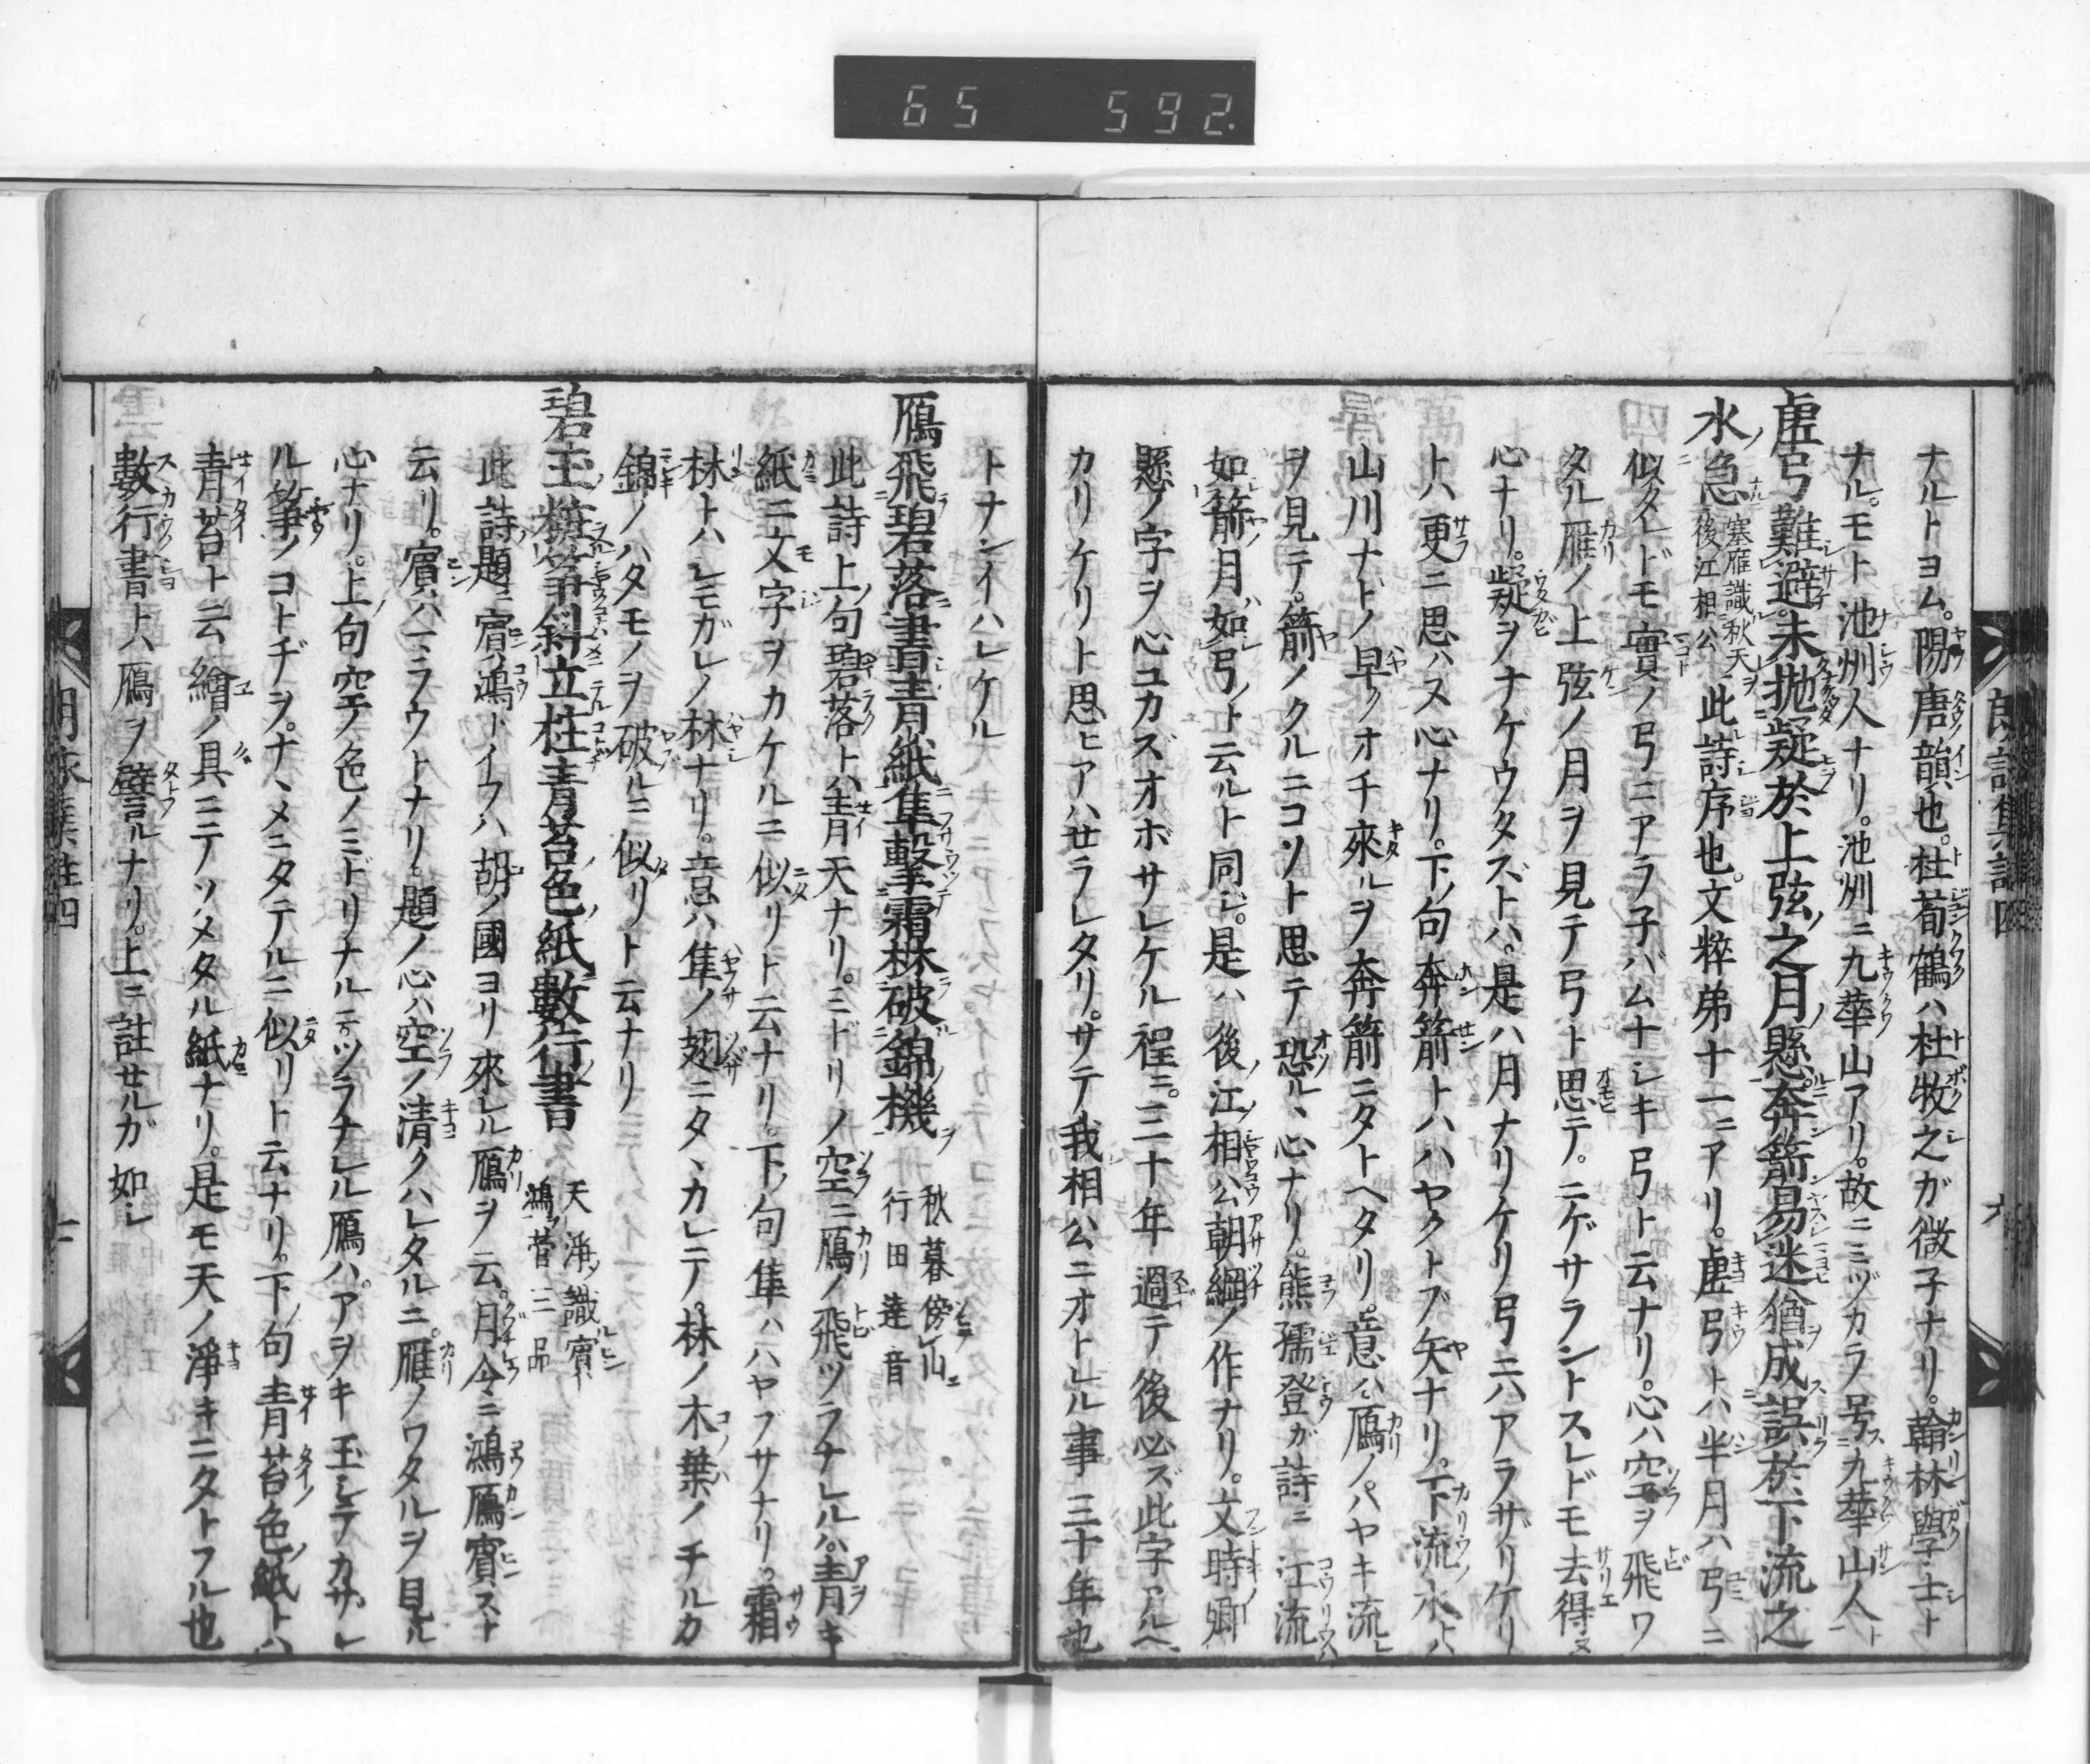 65 592.
ナルトヨム。陽唐韻也。杜荀鶴ハ杜牧之ガ微子ナリ。翰林學士ト
ナル。モト池州人ナリ。池州ニ九華山アリ。故ニミヅカラ号ス九華山人ト
虚弓難避。未抛疑於上弦之月懸。奔箭易迷。猶成誤於下流之
水急 塞雁識秋天 後江相公 此詩序也。文粹弟十一ニアリ。虚弓トハ半月ハ弓ニ
似タレドモ實ノ弓ニアラ子バムナシキ弓ト云ナリ。心ハ空ヲ飛ワ
タル雁ノ上弦ノ月ヲ見テ弓ト思テ。ニゲサラントスレドモ去得ヌ
心ナリ。疑ヲナゲウタズトハ。是ハ月ナリケリ弓ニハアラザリケリ
トハ更ニ思ハヌ心ナリ。下ノ句奔箭トハハヤクトブ矢ナリ。下流水ハ
山川ナドノ早クオチ來ルヲ奔箭ニタトヘタリ。意ハ鴈ノハヤキ流レ
ヲ見テ。箭ノクルニコソト思テ恐ル丶心ナリ。熊孺登ガ詩ニ江流
如箭月如弓ト云ルト同ジ。是ハ後江相公朝綱ノ作ナリ。文時卿
懸ノ字ヲ心ユカズオボサレケル程ニ。三十年過テ後必ズ此字アルヘ
カリケリト思ヒアハせラレタリ。サテ我相公ニオトレル事三十年也
朗詠集註四 六
トナンイハレケル
鴈飛碧落書青紙 隼擊霜林破錦機 秋暮傍山行 田達音
此詩上句碧落トハ青天ナリ。ミドリノ空ニ鴈ノ飛ツラナレルハ。青キ
紙ニ文字ヲカケルニ似リト云ナリ。下ノ句隼ハハヤブサナリ。霜
林トハレモガレノ林ナリ。意ハ隼ノ翅ニタ丶カレテ。林ノ木葉ノチルカ
錦ノハタモノヲ破ルニ似リト云ナリ
碧玉粧箏斜立柱 青苔色紙數行書 天淨識賓鴻 菅三品
此詩ノ題ニ賓鴻ドイフハ胡ノ國ヨリ來レル鴈ヲ云。月令ニ鴻鴈賓スナト
云リ。賓ハマラウトナリ。題ノ心ハ空ノ清クハレタルニ。雁ノワタルヲ見ル
心ナリ。上句空ノ色ノミドリナルニツラナレル鴈ハ。アヲキ玉シテカサレ
ル箏ノコトヂヲ。ナ丶メニタテルニ似リト云ナリ。下ノ句青苔色紙トハ
青苔ト云繪ノ具ニテソメタル紙ナリ。是モ天ノ淨キニタトフル也
數行書トハ鴈ヲ譬ルナリ。上ニ註せルガ如レ